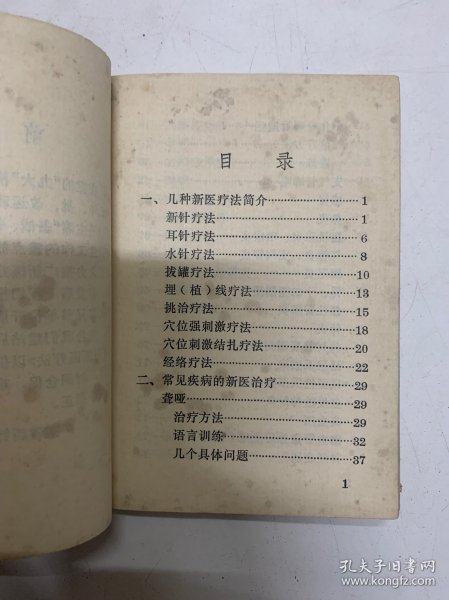 目 录
一、几种新医疗法简介…………1
新针疗法…………1
耳针疗法…………6
水针疗法…………8
拔罐疗法…………10
埋(植)线疗法…………13
挑治疗法…………15
穴位强刺激疗法…………18
穴位刺激结扎疗法…………20
经络疗法…………22
二、常见疾病的新医治疗…………29
聋哑…………29
治疗方法…………29
语言训练…………32
几个具体问题…………37
1
孔夫子旧书网
www.kongfz.com